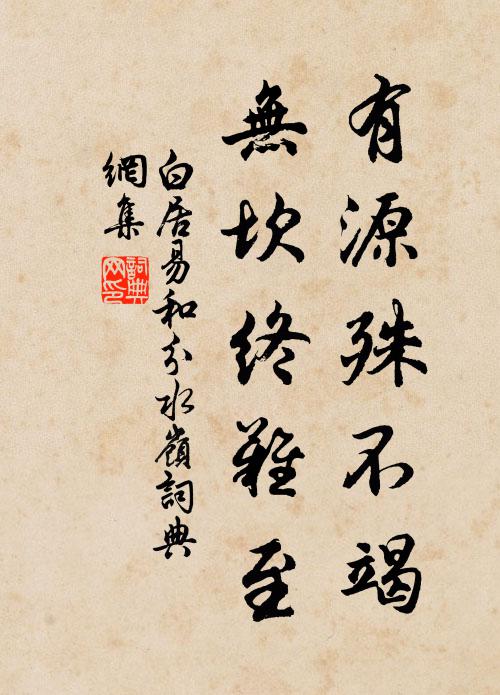 有源殊不竭
無坎終難至
白居易和分水嶺詞典
網集
詞典
网印